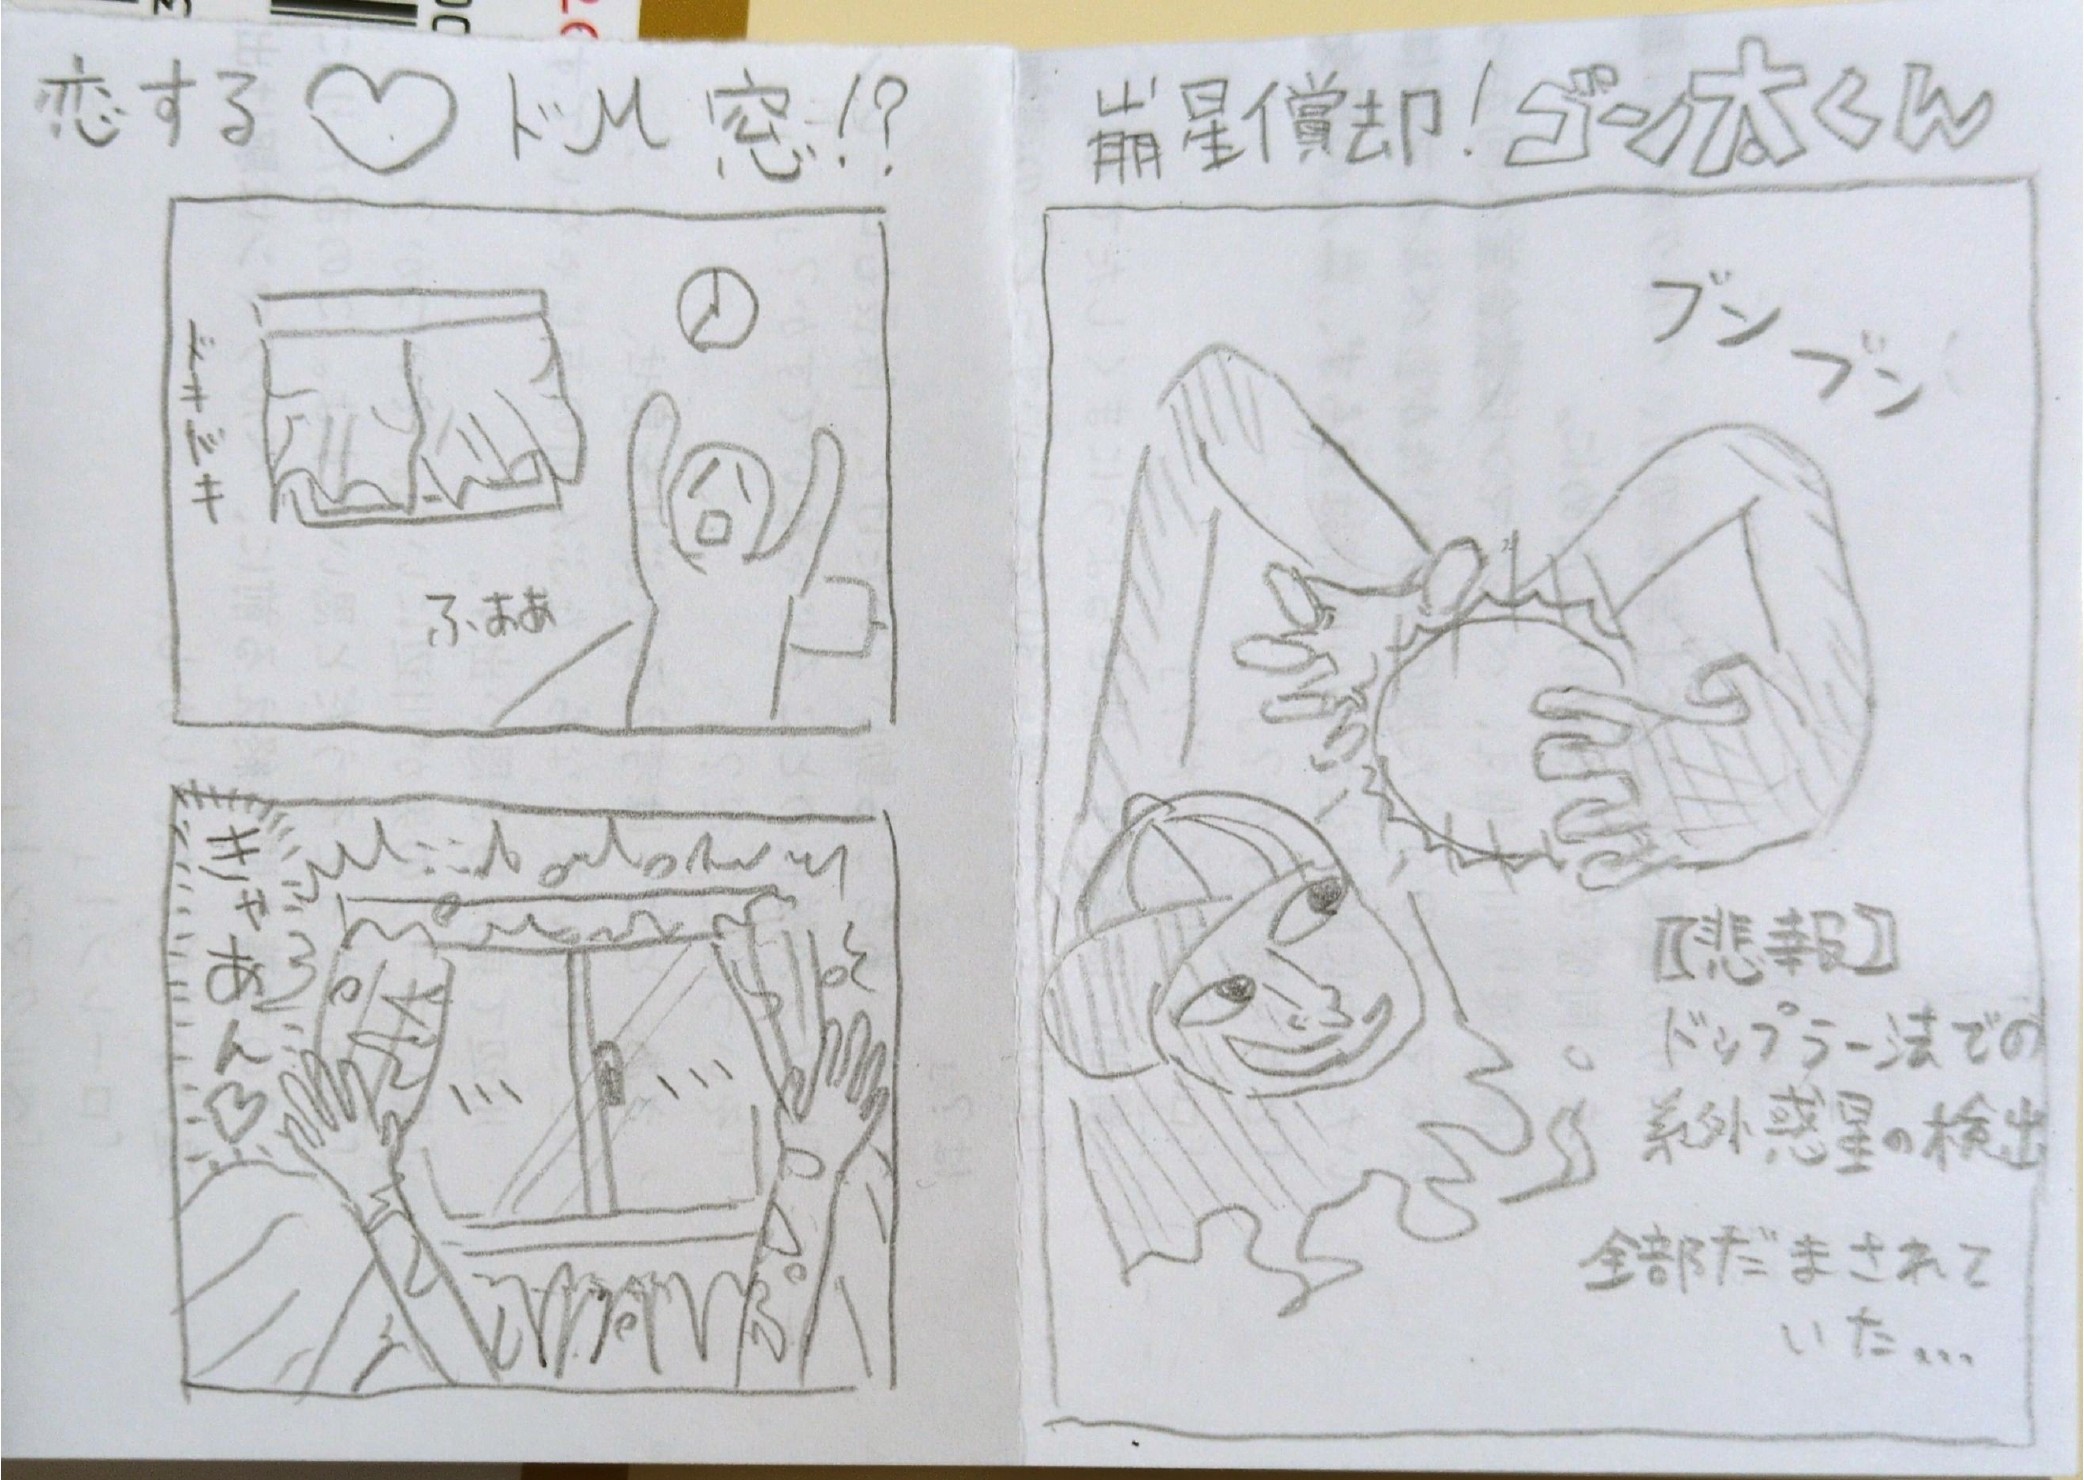 恋する♡ドM窓!?
ドキドキ
ふぁぁあ
きゃあん♡
崩星償却!ゴン太くん
ブンブン
【悲報】
ドップラー法での
系外惑星の検出
全部だまされて
いた...